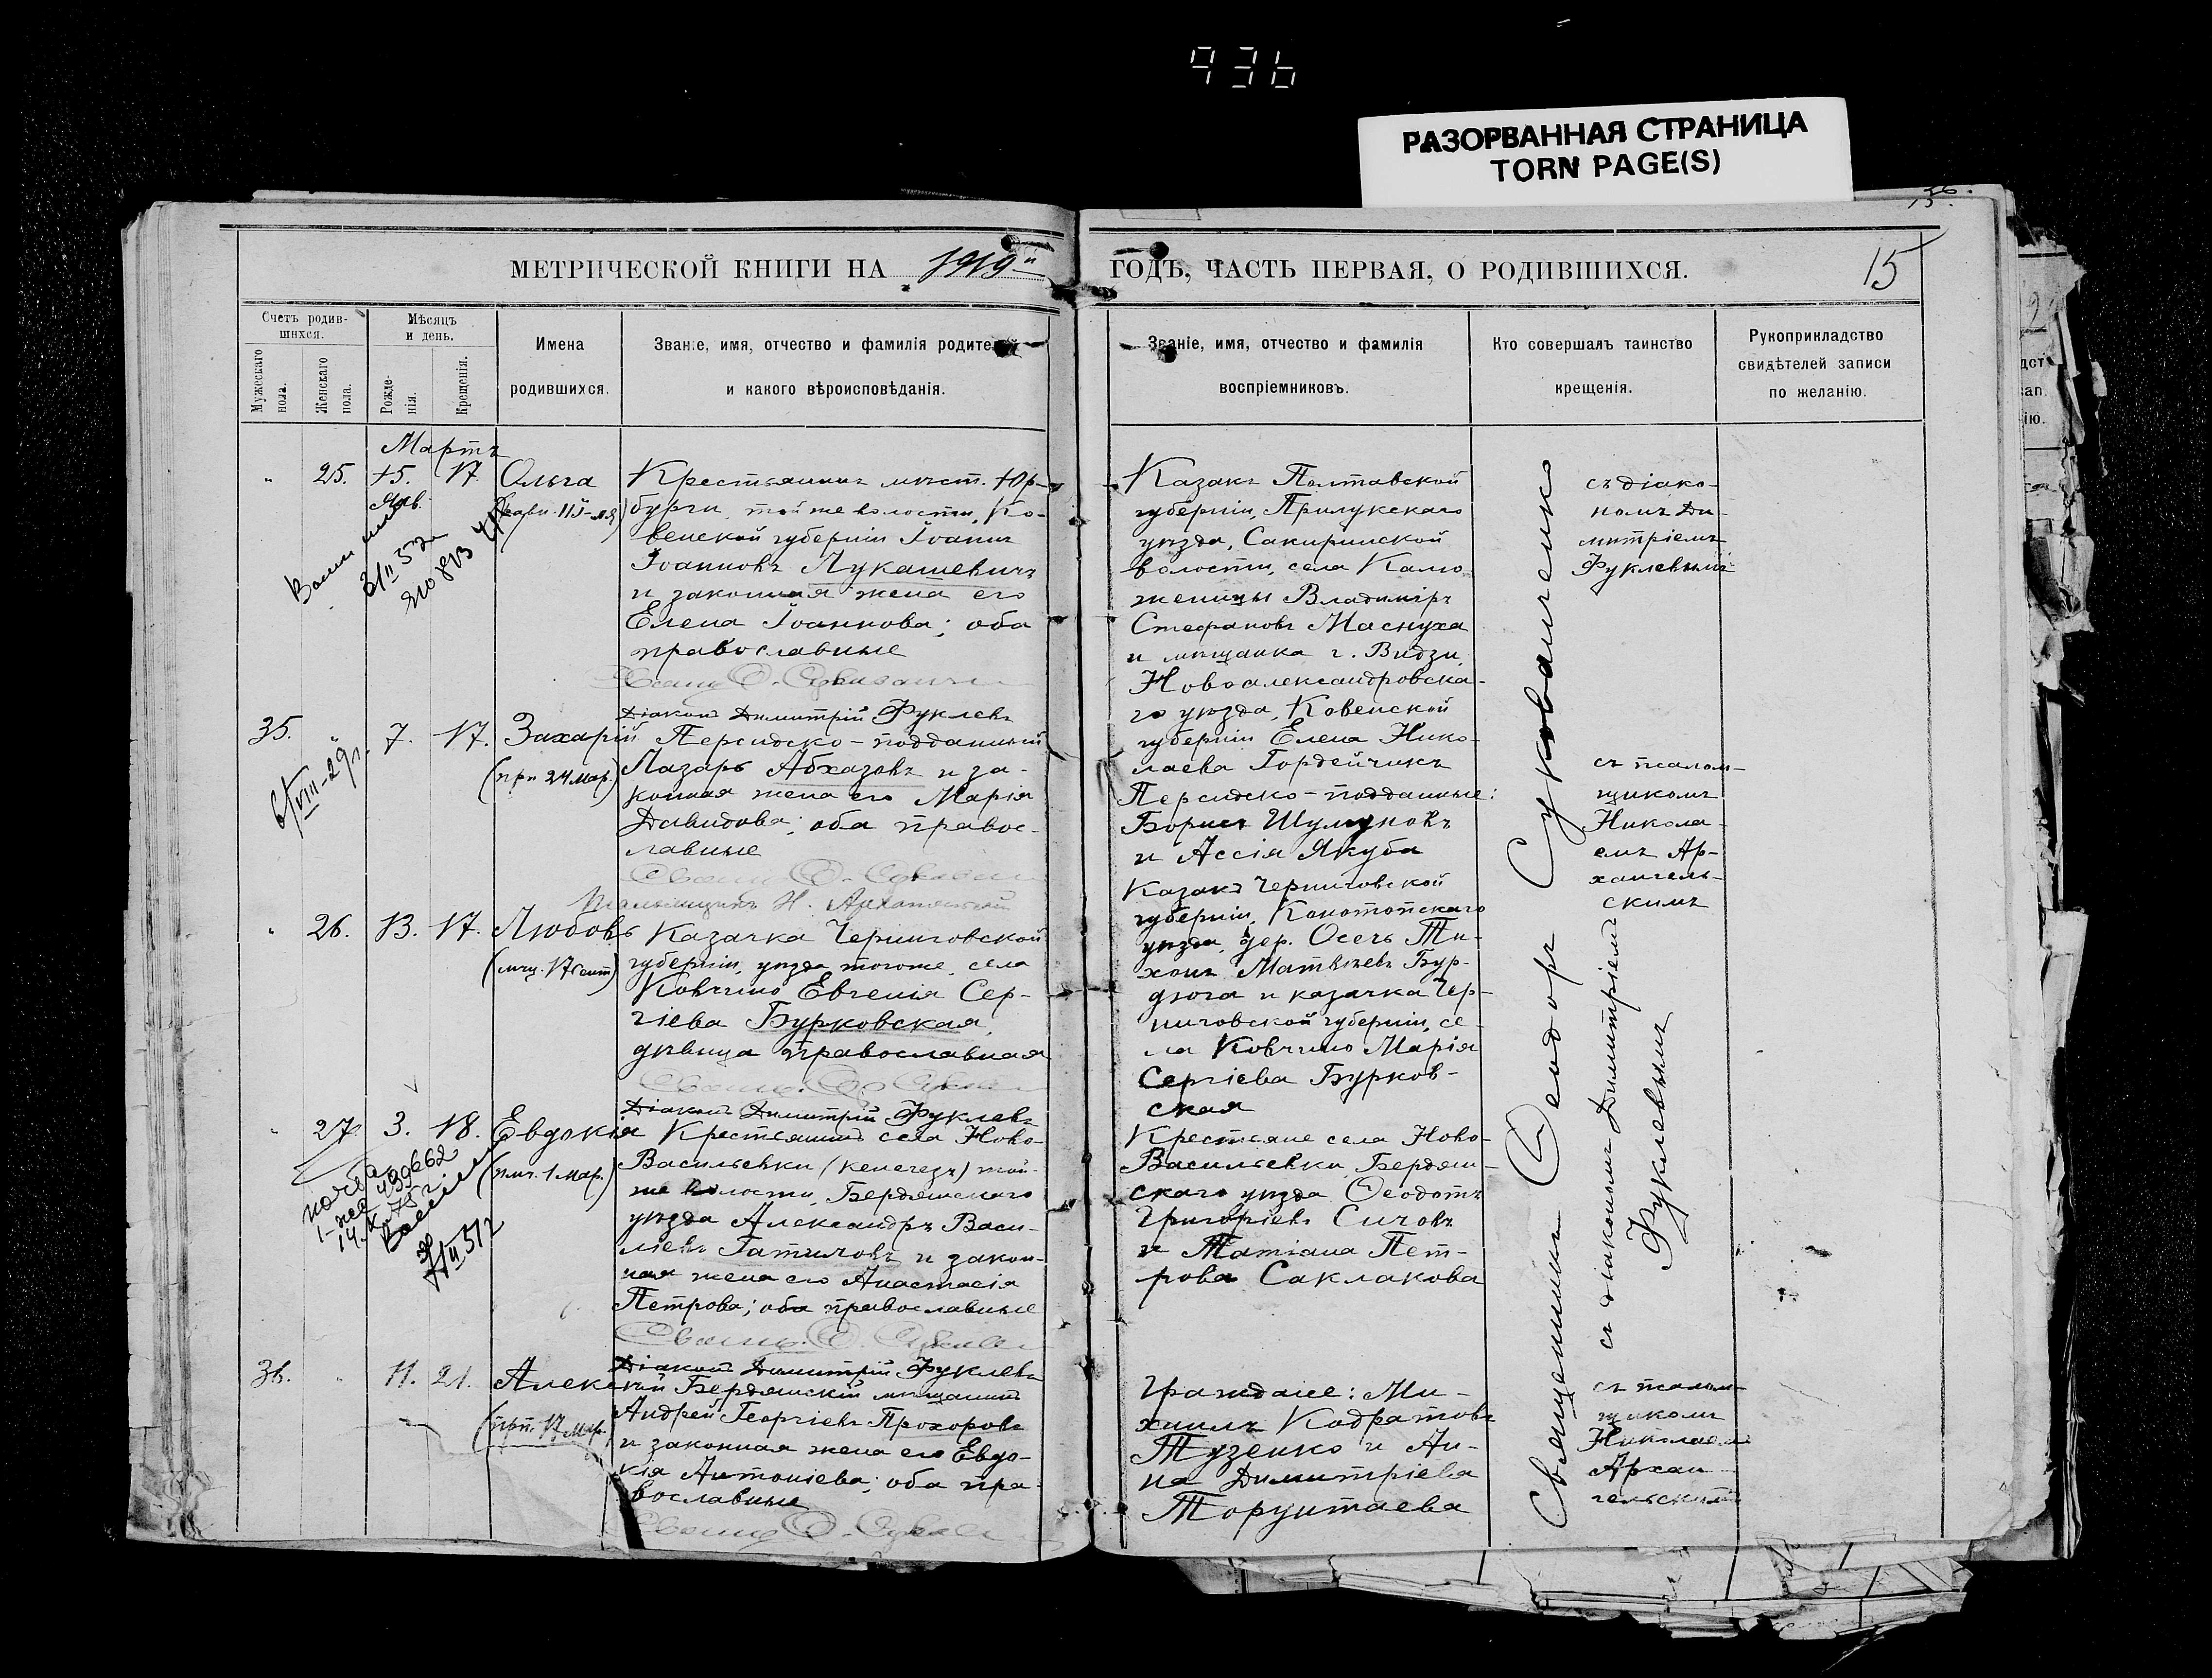 936
РАЗОРВАННАЯ СТРАНИЦА
TORN PAGE(S)
МЕТРИЧЕСКОЙ КНИГИ НА 1919й
ГОДЪ, ЧАСТЬ ПЕРВАЯ, О РОДИВШИХСЯ.
15
Счетъ родив-
шихся.
Мужескаго
пола.
Женскаго
пола.
Мѣсяцъ
и день.
Рожде-
нія.
Крещенія.
Имена
родившихся.
Званіе, имя, отчество и фамилія родителей
и какого вѣроисповѣданія.
Званіе, имя, отчество и фамилія
воспріемниковъ.
Кто совершалъ таинство
крещенія.
Рукоприкладство
свидѣтелей записи
по желанію.
Мартъ
25.
17.
Ольга
Крестьянинъ мѣст. Юр-
бурги, той же волости, Ко-
венской губерніи Іоаннъ
Іоанновъ Лукашевичъ
и законная жена его
Елена Іоаннова; оба
православные
Діаконъ Димитрій Фуклевъ
Казакъ Полтавской
губерніи, Прилукскаго
уѣзда, Сакиринской
волости, села
Владиміръ
Стефановъ Маснуха
и мѣщанка г. Видзи,
Новоалександровска-
го уѣзда, Ковенской
губерніи Елена Нико-
лаева Гордейчикъ
съ діако-
номъ Ди-
митріемъ
Фуклевымъ
35.
7.
17.
Захарій
(прп 24 мар.)
6/VIII-29г.
Персидско-подданный
Лазарь Абхазовъ и за-
конная жена его Марія
Давидова; оба правос-
лавные
Псаломщикъ Н. Архангельскій
Персидско-подданные:
Борисъ Шумуновъ
и Ассія Якуба
съ псалом-
щикомъ
Никола-
емъ Ар-
хангель-
скимъ
26.
13.
17.
Любовь
(мчц. 17 сент)
Казачка Черниговской
губерніи, уѣзда тогоже, села
Ковчино Евгенія Сер-
гіева Бурковская,
дѣвица православная
Діаконъ Димитрій Фуклевъ
Казакъ Черниговской
губерніи, Конотопскаго
уѣзда, дер. Осечь Ти-
хонъ Матвѣевъ Бур-
дюга и казачка Чер-
ниговской губерніи, се-
ла Ковчино Марія
Сергіева Бурков-
ская
27.
3.
18.
Евдокія
(пмч. 1 Мар.)
Крестьянинъ села Ново-
Васильевки (кенегезъ) той-
же волости, Бердянскаго
уѣзда Александръ Васи-
ліевъ Гатиловъ и закон-
ная жена его Анастасія
Петрова; оба православные
Діаконъ Димитрій Фуклевъ
Крестьяне села Ново-
Васильевки Бердян-
скаго уѣзда Ѳеодотъ
Григоріевъ Сичовъ
и Татіана Пет-
рова Саклакова
36.
11.
21.
Алексій
(прп. 17 Мар.
Бердянскій мѣщанинъ
Андрей Георгіевъ Прохоровъ
и законная жена его Евдо-
кія Антоніева; оба пра-
вославные
Граждане: Ми-
хаилъ Кодратовъ
Тузенко и Ан-
на Димитріева
съ псалом-
щикомъ
Николаемъ
Архан-
гельскимъ
Священникъ Ѳеодоръ Сукованченко
съ діакономъ Димитріемъ
Фуклевымъ